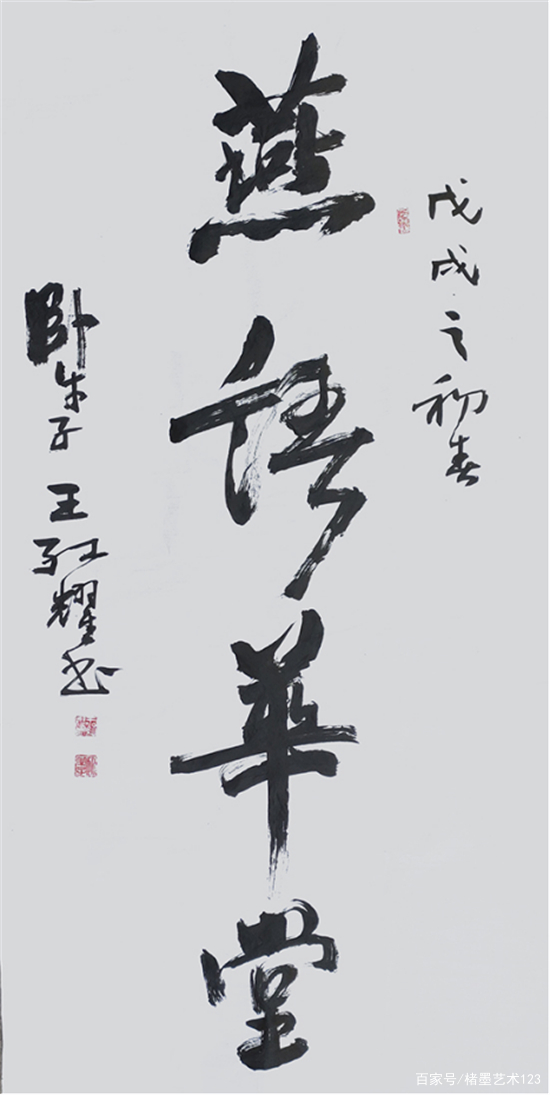 戊戌之初春
燕语華堂
卧牛子王红耀书
百家号/楮墨艺术123